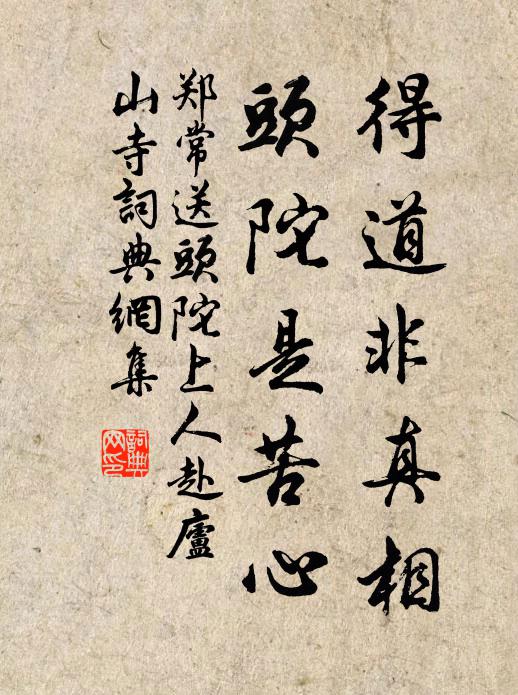 得道非真相
頭陀是苦心
郑常送頭陀上人赴廬
山寺詞典網集
詞典网印